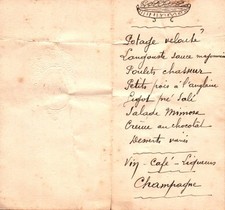 Potage velouté
Langouste sauce mayonnaise
Poulets chasseur
Petits pois à l'anglaise
Gigot pré salé
Salade Mimosa
Crème au chocolat
Desserts variés
Vin - Café - Liqueurs
Champagne